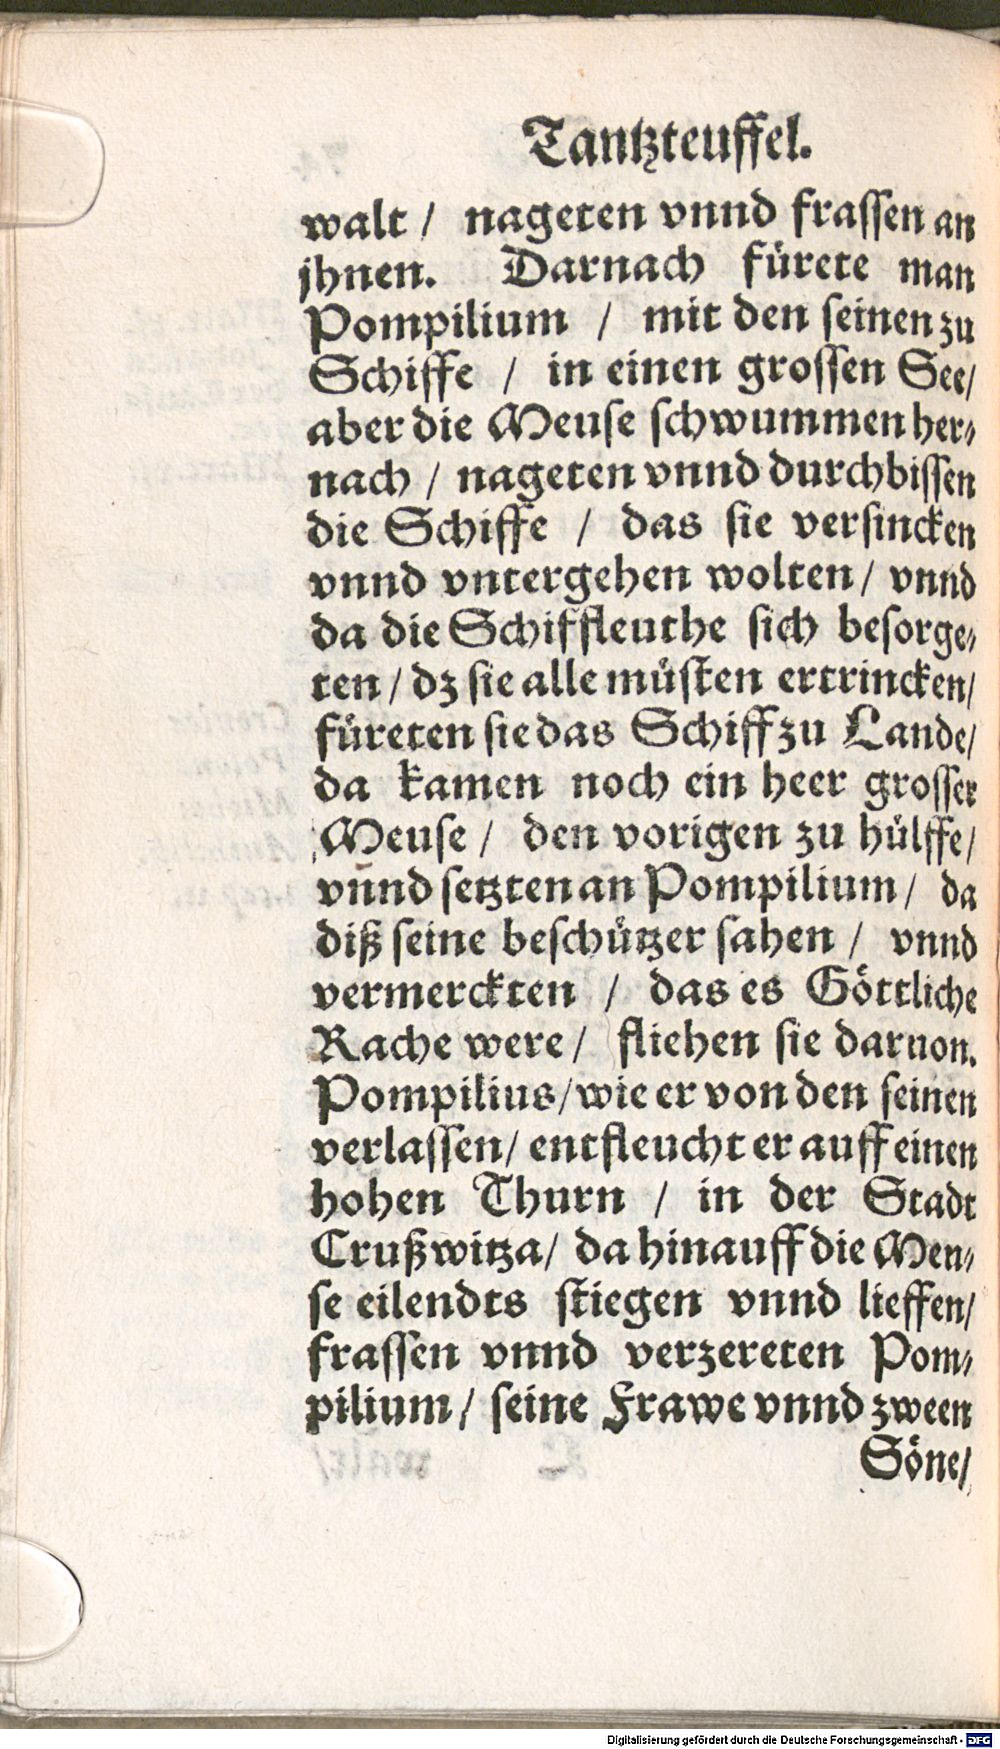 Tantzteuffel.
walt / nageten vnnd frassen an
jhnen. Darnach fürete man
Pompilium / mit den seinen zu
Schiffe / in einen grossen See/
aber die Meuse schwummen her⸗
nach / nageten vnnd durchbissen
die Schiffe / das sie versincken
vnnd vntergehen wolten/ vnnd
da die Schiffleuthe sich besorge⸗
ten/ dz sie alle müsten ertrincken/
füreten sie das Schiff zu Lande/
da kamen noch ein heer grosser
Meuse/ den vorigen zu hülffe/
vnnd setzten an Pompilium/ da
diß seine beschützer sahen/ vnnd
vermerckten / das es Göttliche
Rache were/ fliehen sie daruon.
Pompilius/wie er von den seinen
verlassen/ entfleucht er auff einen
hohen Thurn / in der Stadt
Crußwitza/ da hinauff die Men⸗
se eilendts stiegen vnnd lieffen/
frassen vnnd verzereten Pom⸗
pilium/ seine Frawe vnnd zween
Söne/
Digitalisierung gefördert durch die Deutsche Forschungsgemeinschaft - DFG